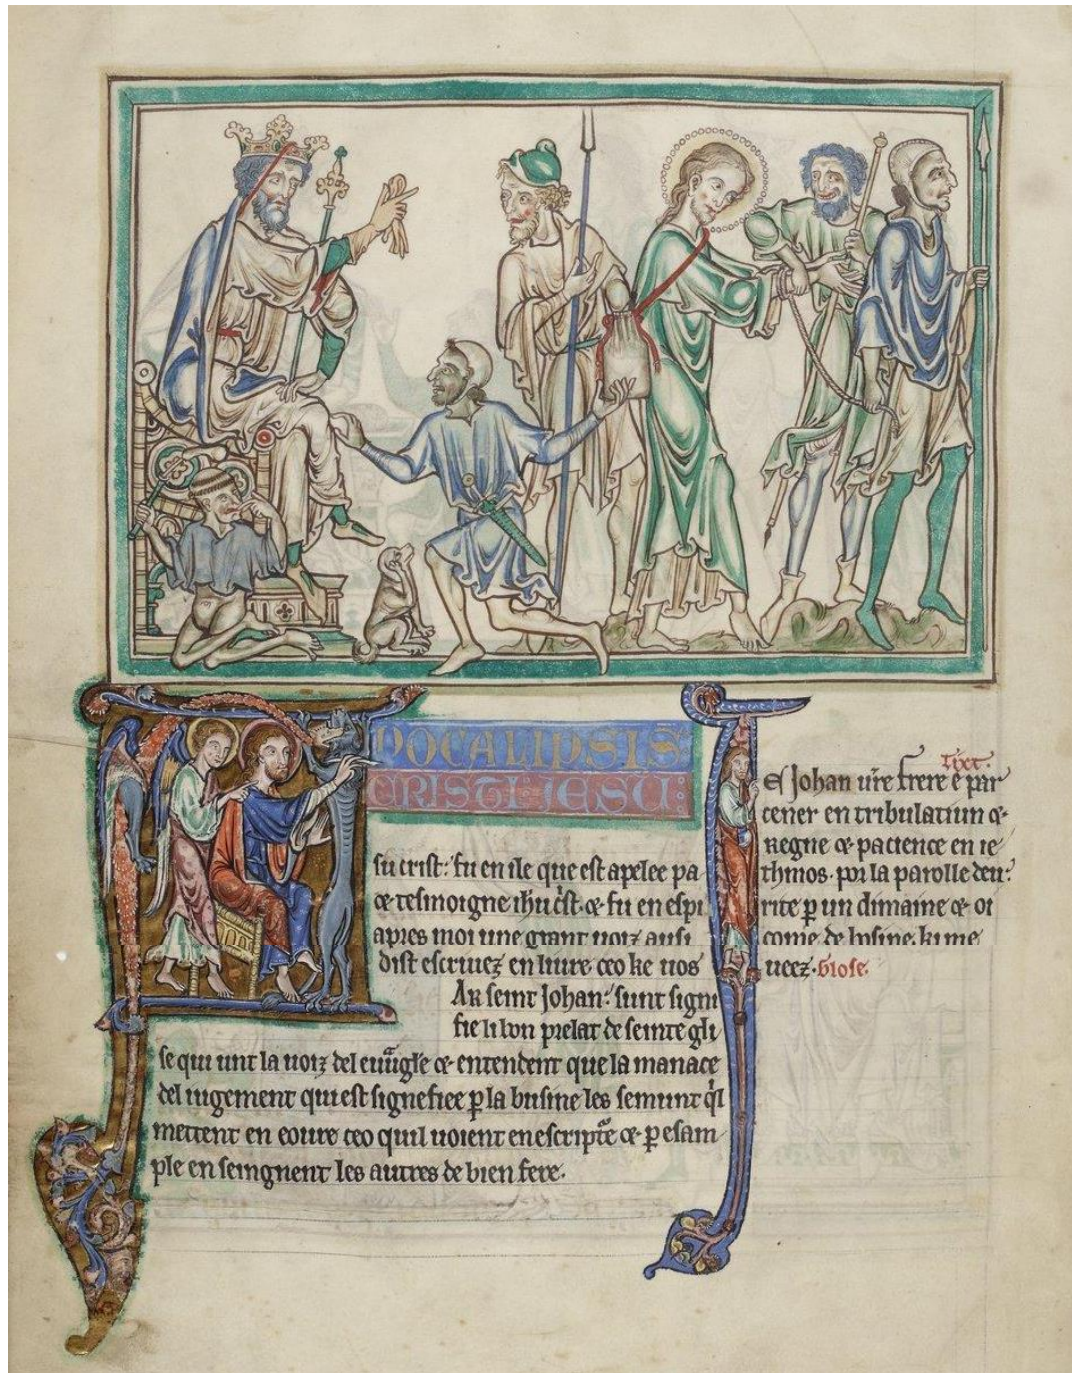 APOCALIPSIS
CRISTI: IESU:
tixt.
IEſ Johan ur̄e frere e par
cener en tribulatiun ⁊
regne ⁊ pacience en ie
su crist: fu en ile que est apelee pa thmos. por la parolle deu:
⁊ tesmoigne ihū c̉st. ⁊ fu en espi rite ꝑ un dimaine ⁊ oi
apres moi une grant uoiz ausi come de busine. ki me
dist escriuez en liure ceo ke uos ueez. Glose.
Ar seint Johan: sunt signi
fie li bon prelat de seinte gli
se qui unt la uoiz del euãgle ⁊ entendent que la manace
del iugement qui est signefiee ꝑ la busine les semunt q̉l
mettent en eoure ceo quil uoient en escriptẽ ⁊ ꝑ esam
ple enseingnent les autres de bien fere.